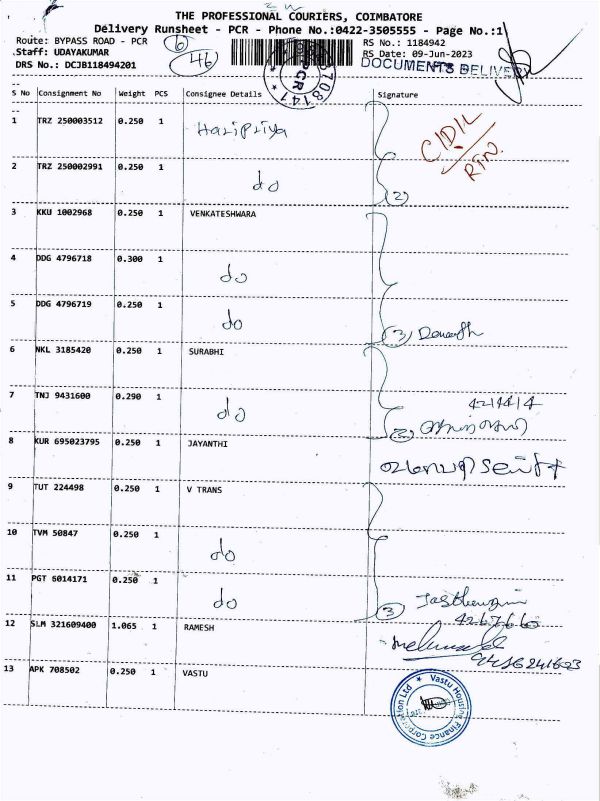 THE PROFESSIONAL COURIERS, COIMBATORE
Delivery Runsheet - PCR - Phone No.:0422-3505555 - Page No.:1
Route: BYPASS ROAD - PCR
6
RS No.: 1184942
Staff: UDAYAKUMAR
46
RS Date: 09-Jun-2023
DRS No.: DCJB118494201
DOCUMENTS DELIVERY
PCR
S No Consignment No Weight PCS Consignee Details Signature
1 TRZ 250003512 0.250 1 Haripriya
2 TRZ 250002991 0.250 1 do
(2)
3 KKU 1002968 0.250 1 VENKATESHWARA
4 DDG 4796718 0.300 1 do
5 DDG 4796719 0.250 1 do
(3)
6 NKL 3185420 0.250 1 SURABHI
7 TNJ 9431600 0.290 1 do
4214414
(2)
8 KUR 695023795 0.250 1 JAYANTHI
9 TUT 224498 0.250 1 V TRANS
10 TVM 50847 0.250 1 do
11 PGT 6014171 0.250 1 do
(3)
4267660
12 SLM 321609400 1.065 1 RAMESH
13 APK 708502 0.250 1 VASTU
Vastu Housing Finance Corporation Ltd